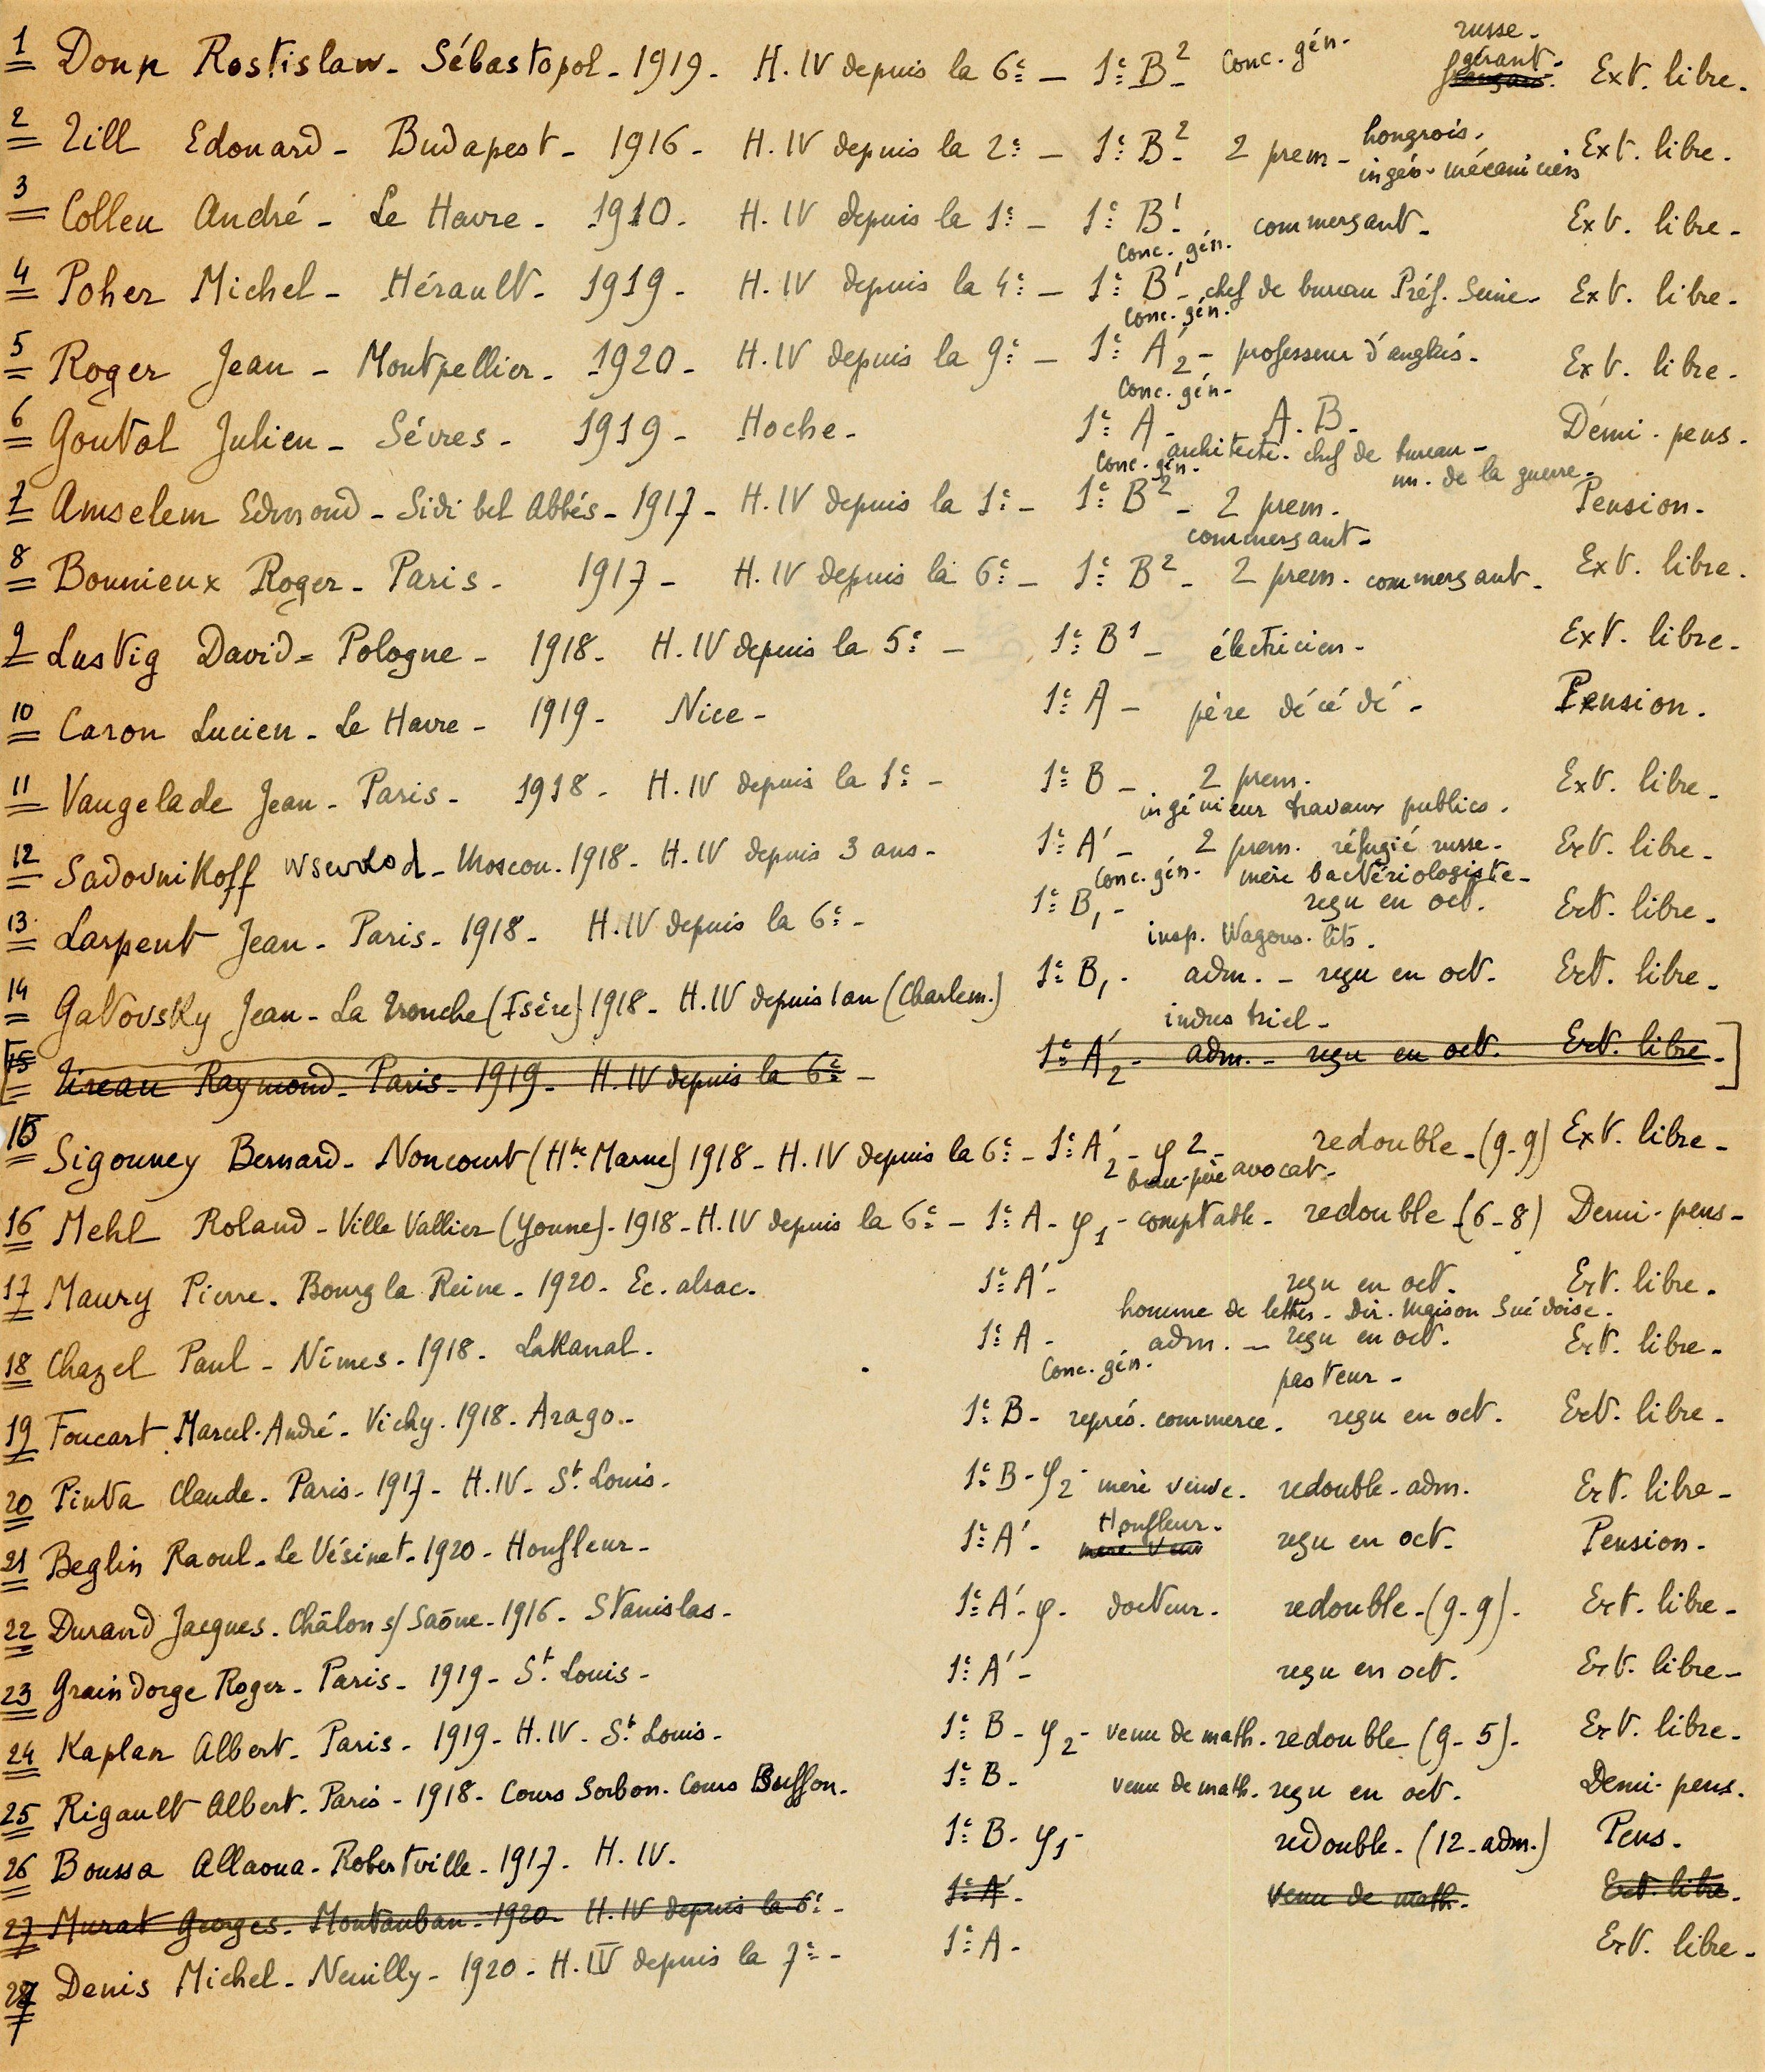 russe.
1 Doun Rostislaw - Sébastopol - 1919 - H. IV depuis la 6e - 1e B2 Conc. gén. gérant. Ext. libre.
hongrois.
2 Zill Edouard - Budapest - 1916 - H. IV depuis la 2e - 1e B2 - 2 prem - Ext. libre.
ingén. mécanicien
3 Colleu André - Le Havre - 1910 - H. IV depuis la 1e - 1e B1 - commerçant - Ext. libre -
Conc. gén.
4 Poher Michel - Hérault - 1919 - H. IV depuis la 4e - 1e B1 - chef de bureau Préf. Seine - Ext. libre -
Conc. gén.
5 Roger Jean - Montpellier - 1920 - H. IV depuis la 9e - 1e A'2 - professeur d'anglais - Ext. libre -
Conc. gén -
6 Goutal Julien - Sèvres - 1919 - Hoche - 1e A - A. B - Demi-pens -
architecte. chef de bureau -
Conc. gén. m. de la guerre -
7 Amselem Edmond - Sidi bel Abbès - 1917 - H. IV depuis la 1e - 1e B2 - 2 prem. Pension -
commerçant -
8 Bounieux Roger - Paris - 1917 - H. IV depuis la 6e - 1e B2 - 2 prem. commerçant - Ext. libre.
9 Lustig David - Pologne - 1918 - H. IV depuis la 5e - 1e B1 - électricien - Ext. libre -
10 Caron Lucien - Le Havre - 1919 - Nice - 1e A - père décédé - Pension.
11 Vaugelade Jean - Paris - 1918 - H. IV depuis la 1e - 1e B - 2 prem. Ext. libre -
ingénieur travaux publics.
12 Sadovnikoff Wsewolod - Moscou. 1918 - H. IV depuis 3 ans - 1e A' - 2 prem. réfugié russe - Ext. libre -
Conc. gén. mère bactériologiste -
13 Larpent Jean - Paris - 1918 - H. IV depuis la 6e - 1e B1 - reçu en oct. Ext. libre -
insp. Wagons-lits.
14 Gatovsky Jean - La Tronche (Isère) 1918 - H. IV depuis 1 an (Charlem.) 1e B1 - adm. - reçu en oct. Ext. libre -
industriel -
[15 Raymond - Paris - 1919 - H. IV depuis la 6e - 1e A'2 - adm. - reçu en oct. Ext. libre -]
15 Sigouney Bernard - Noncourt (Hte Marne) 1918 - H. IV depuis la 6e - 1e A'2 - φ2 - redouble - (9-9) Ext. libre -
beau-père avocat -
16 Mehl Roland - Ville Vallier (Yonne) - 1918 - H. IV depuis la 6e - 1e A - φ1 - comptable - redouble - (6-8) Demi-pens -
17 Maury Pierre - Bourg la Reine - 1920 - Ec. alsac. 1e A' - reçu en oct. Ext. libre.
homme de lettres - Dir. Maison Suédoise.
18 Chazel Paul - Nîmes - 1918 - Lakanal. 1e A - adm. - reçu en oct. Ext. libre -
Conc. gén. pasteur -
19 Foucart Marcel-André - Vichy. 1918 - Arago - 1e B - représ. commerce. reçu en oct. Ext. libre -
20 Pinta Claude - Paris - 1917 - H. IV - St Louis. 1e B - φ2 - mère veuve. redouble - adm. Ext. libre -
Honfleur -
21 Beglin Raoul - Le Vésinet - 1920 - Honfleur - 1e A' - mère veuve reçu en oct. Pension -
22 Durand Jacques - Châlon s/ Saône - 1916 - Stanislas - 1e A' - φ - docteur. redouble - (9-9). Ext. libre -
23 Graindorge Roger - Paris - 1919 - St Louis - 1e A' - reçu en oct. Ext. libre -
24 Kaplan Albert - Paris - 1919 - H. IV - St Louis - 1e B - φ2 - venu de math. redouble (9-5) - Ext. libre -
25 Rigault Albert - Paris - 1918 - Cours Sorbon. Cours Buffon. 1e B - venu de math. reçu en oct. Demi-pens.
26 Boussa Allaoua - Robertville - 1917 - H. IV. 1e B - φ1 - redouble - (12-adm.) Pens -
27 Murat Georges - Montauban - 1920 - H. IV depuis la 6e - 1e A' - venu de math. Ext. libre -
27 Denis Michel - Neuilly - 1920 - H. IV depuis la 7e - 1e A - Ext. libre -